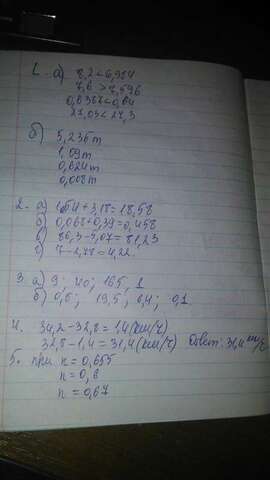 1. а) 8,2 < 6,984
7,6 > 7,596
0,6387 < 0,64
27,03 < 27,3
б) 5,236т
1,09т
0,624т
0,008т
2. а) 15,4 + 3,18 = 18,58
б) 0,068 + 0,39 = 0,458
86,3 - 5,07 = 81,23
7 - 2,78 = 4,22
3. а) 9; 40; 165, 1
б) 0,6; 19,5; 6,4; 0,1
4. 34,2 - 32,8 = 1,4 (км/ч)
32,8 - 1,4 = 31,4 (км/ч) Ответ: 31,4 км/ч
5. при n = 0,655
n = 0,6
n = 0,67